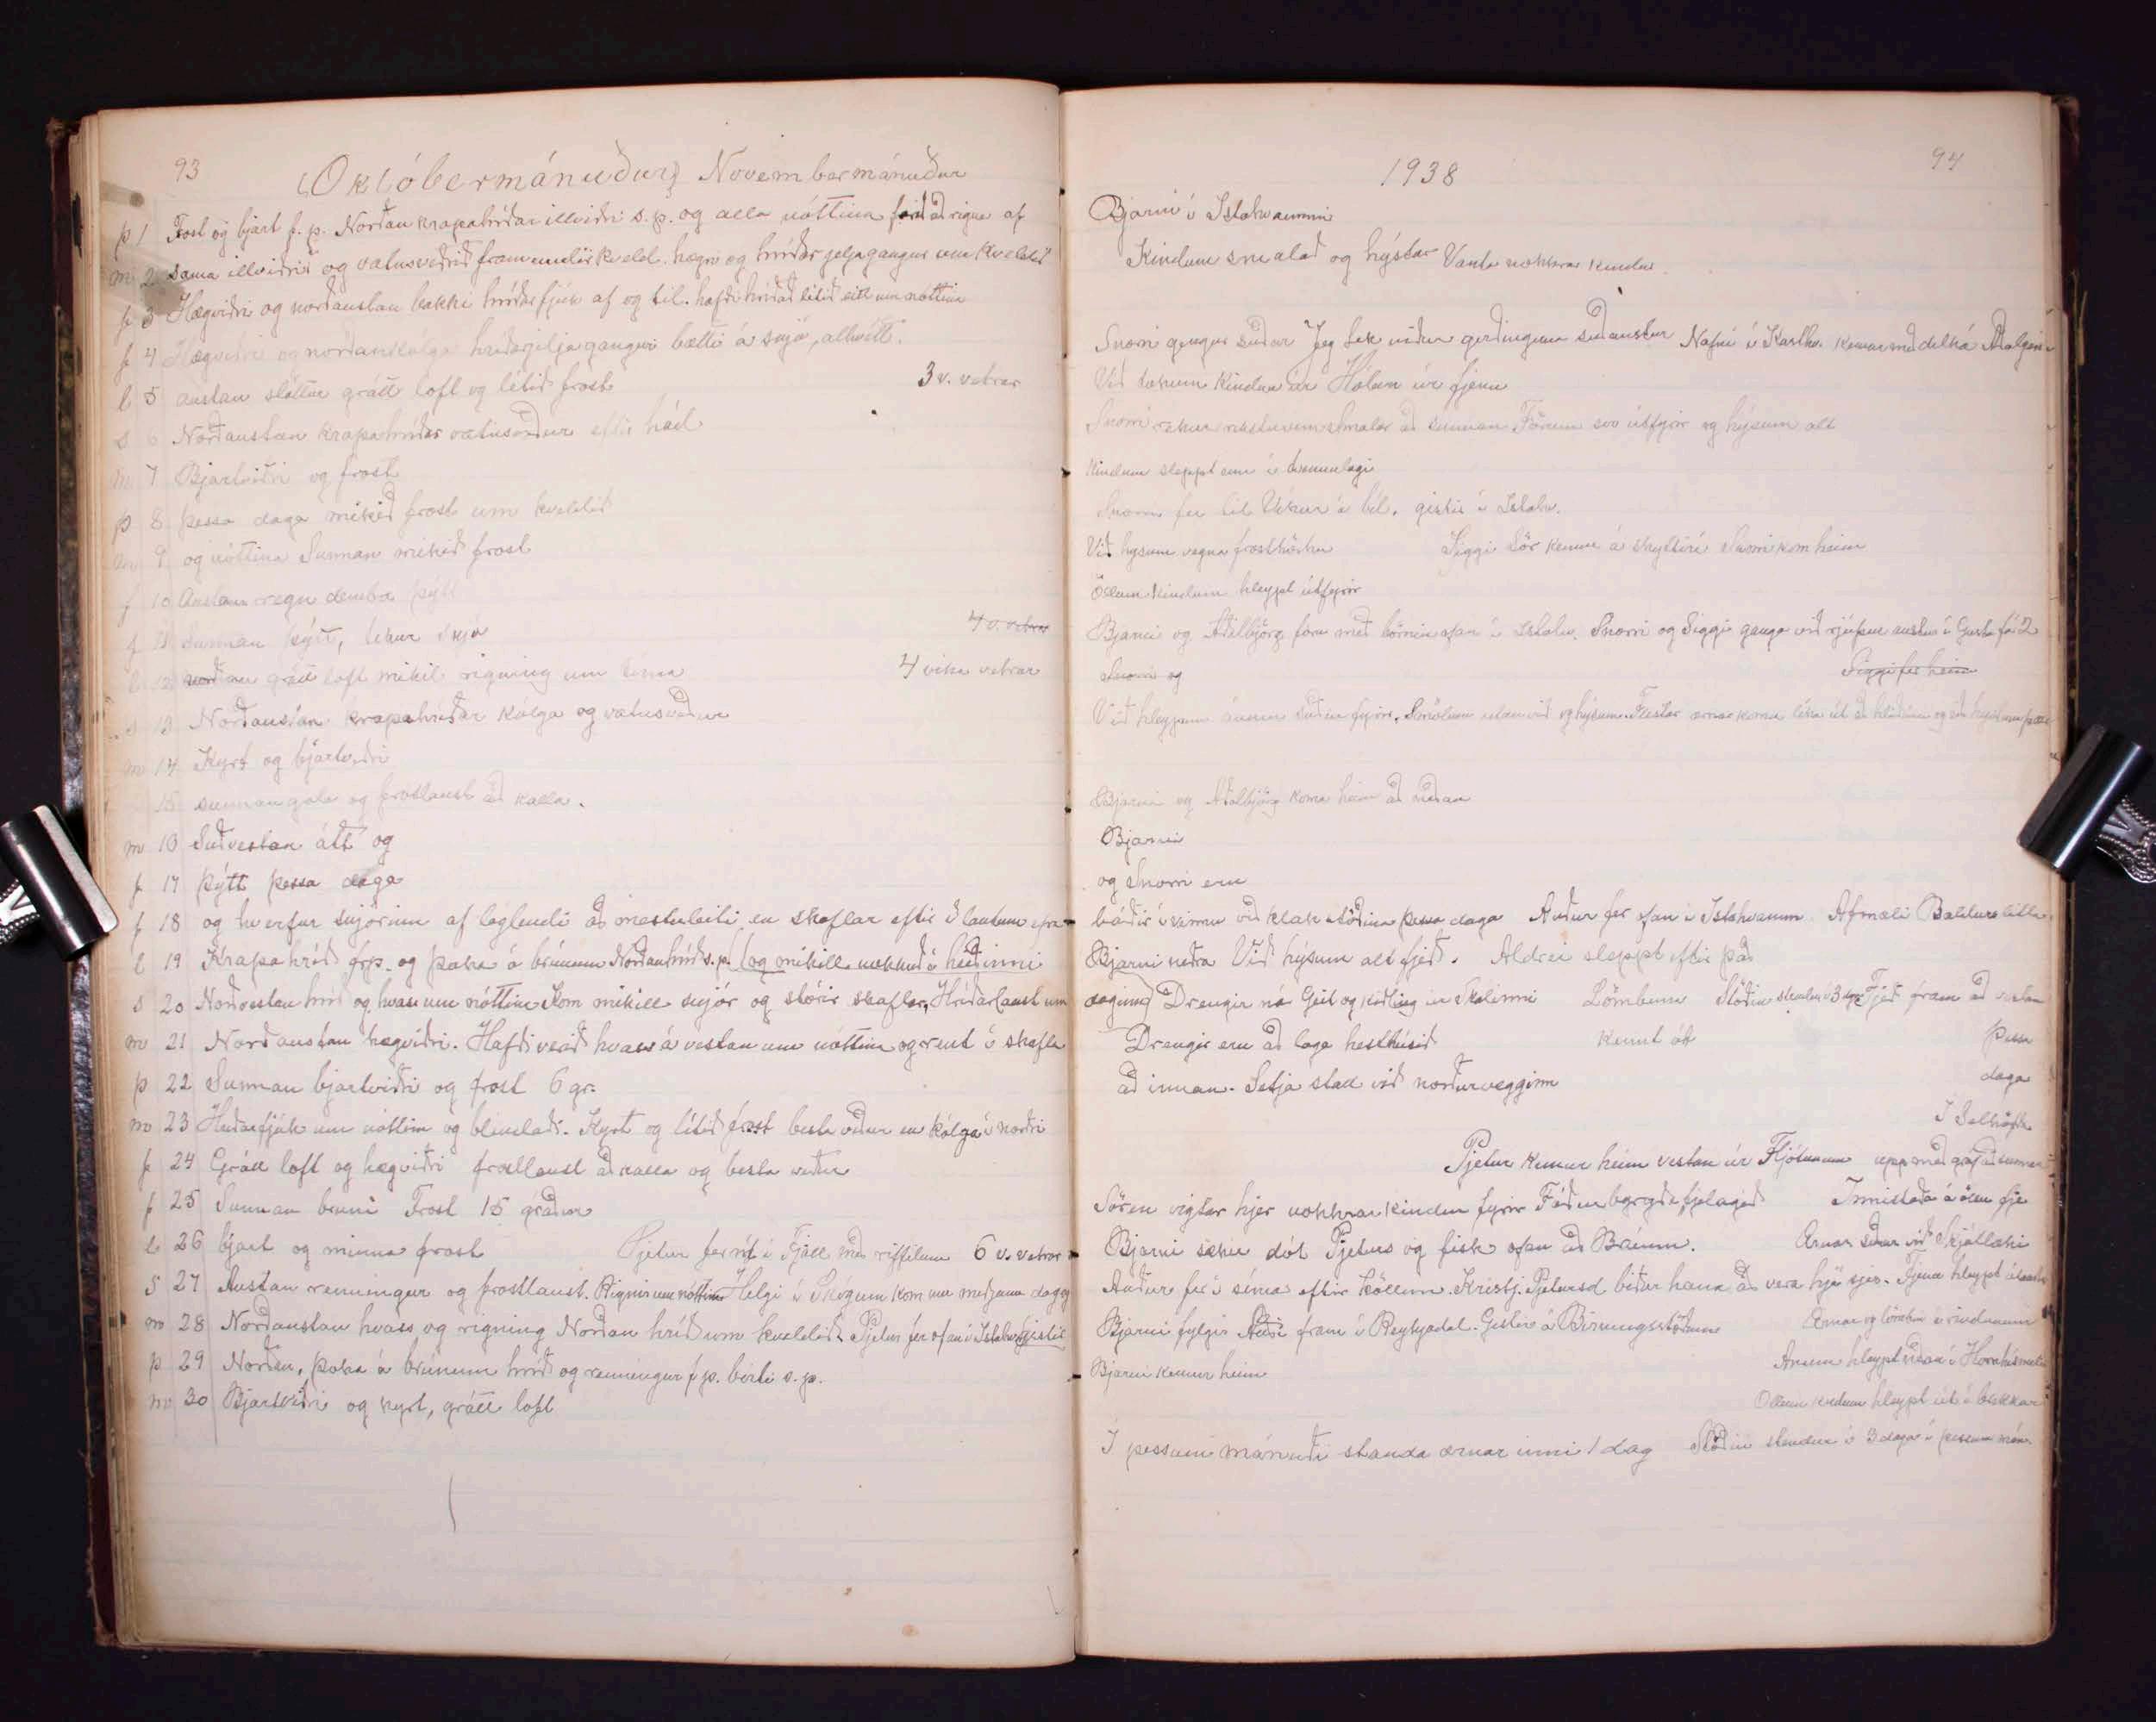 93
(Októbermánuður) Novembermánuður
þ 1 Frost og bjart f. p. Norðan krapahríðar illviðri s.p. og alla nóttina farið að rigna af
m 2 sama illviðrið og vatnsveðrið fram undir kveld. hægri og hríðarjeljagangur um kveldið
f 3 Hægviðri og norðaustan bakki hríðarfjúk af og til. hafði hríðað lítið eitt um nóttina
f 4 Hægviðri og norðankólga hríðarjeljagangur bætti á snjó, allhvítt.
l 5 austan slóttur grátt loft og lítið frost 3 v. vetrar
s 6 Norðaustan krapahríðar vatnsveður eftir hád
m 7 Bjartviðri og frost
þ 8 þessa daga mikið frost um kveldið
m 9 og nóttina Sunnan mikið frost
f 10 Austan regn demba þýtt
f 11 Sunnan þýtt, tekur snjó 4 v. vetrar
l 12 norðan grátt loft mikil rigning um tíma 4 vika vetrar
s 13 Norðaustan krapahríðar kólga og vatnsveður
m 14 Kyrt og bjartviðri
15 sunnan gola og frostlaust að kalla.
m 16 Suðvestan átt og
f 17 þýtt þessa daga
f 18 og hverfur snjórinn af láglendi að mestuleiti en skaflar eftir í lautum
l 19 Krapahríð f.p. og þoka á brúnum Norðanhríð s.p. (og mikill nokkuð á heiðinni
s 20 Norðaustan hríð og hvass um nóttina Kom mikill snjór og stórir skaflar, Hríðarlaust um
m 21 Norðaustan hægviðri. Hafði verið hvass á vestan um nóttina og rent í skafla
þ 22 Sunnan bjartviðri og frost 6 gr.
m 23 Hríðarfjúk um nóttina og blindað. Kyrt og lítið frost besta veður en kólga í norðri
f 24 Grátt loft og hægviðri frostlaust að kalla og besta veður
f 25 Sunnan bruni Frost 15 gráður
l 26 bjart og minna frost Pjetur fer út í Fjall með riffilinn 6 v. vetrar
s 27 Austan renningur og frostlaust. Rignir um nóttina Helgi í Skógum kom um miðjann dag og
m 28 Norðaustan hvass og rigning Norðan hríð um kveldið Pjetur fer ofan í Ístahv. gistir
þ 29 Norðan, þoka á brúnum hríð og renningur f.p. birti s.p.
m 30 Bjartviðri og kyrt, grátt loft
1938
94
Bjarni í Ístahvammi
Kindum smalað og hýstar Vanta nokkrar kindur
Snorri gengur suður Jeg tek niður girðinguna suðaustur Nafni í Kasthv. kemur með dilká Aðalgeirs
Við tökum kindur úr Hólum úr fjenu
Snorri rekur smalar að sunnan Förum svo útfyrir og hýsum alt
Kindum sleppt enn í
Snorri fer til Víkur á bíl. gistir í Ístahv.
Við hýsum vegna frosthörku Siggi Sör kemur á skyttirí Snorri kom heim
Öllum kindum hleypt útfyrir
Bjarni og Aðalbjörg fara með börnin ofan í Ístahv. Snorri og Siggi ganga við rjúpur austur í fá 2
Snorri og Siggi fer heim
Við hleypum ánum suður fyrir. og hýsum Flestar ærnar koma
Bjarni og Aðalbjörg koma heim að neðan
Bjarni
og Snorri eru
báðir í vinnu við klakstöðina þessa daga Auður fer ofan í Ístahvamm Afmæli Baldurs litla
Bjarni neðra Við hýsum alt fjeð. Aldrei sleppt eftir það
daginn) Drengir ná Gul og Kidling úr Skálinni Lömbum Stóðið stendur í 3 daga Fjeð fram að vestan
Drengir eru að laga hesthúsið kennt át þessa
að innan. Setja stall við norðurvegginn daga
Í Selhöfða
Pjetur kemur heim vestan úr Fljótunum upp með gjá að sunnan
Sören vigtar hjer nokkrar kindur fyrir Fóðurbyrgðafjelagið Innistaða á öllu fje
Bjarni sækir dót Pjeturs og fisk ofan að Brúum. Ærnar suður við Skjállæki
Auður fer í síma eftir köllun. Kristj. Pjetursd biður hana að vera hjá sjer. Fjenu hleypt
Bjarni fylgir Auði fram í Reykjadal. Gistir á Birningsstöðum Ærnar og lömbin í rindunum
Bjarni kemur heim Ánum hleypt
Öllum kindum hleypt út í bakkar
Í þessum mánuði standa ærnar inni 1 dag Stóðið stendur í 3 daga í þessum mán.